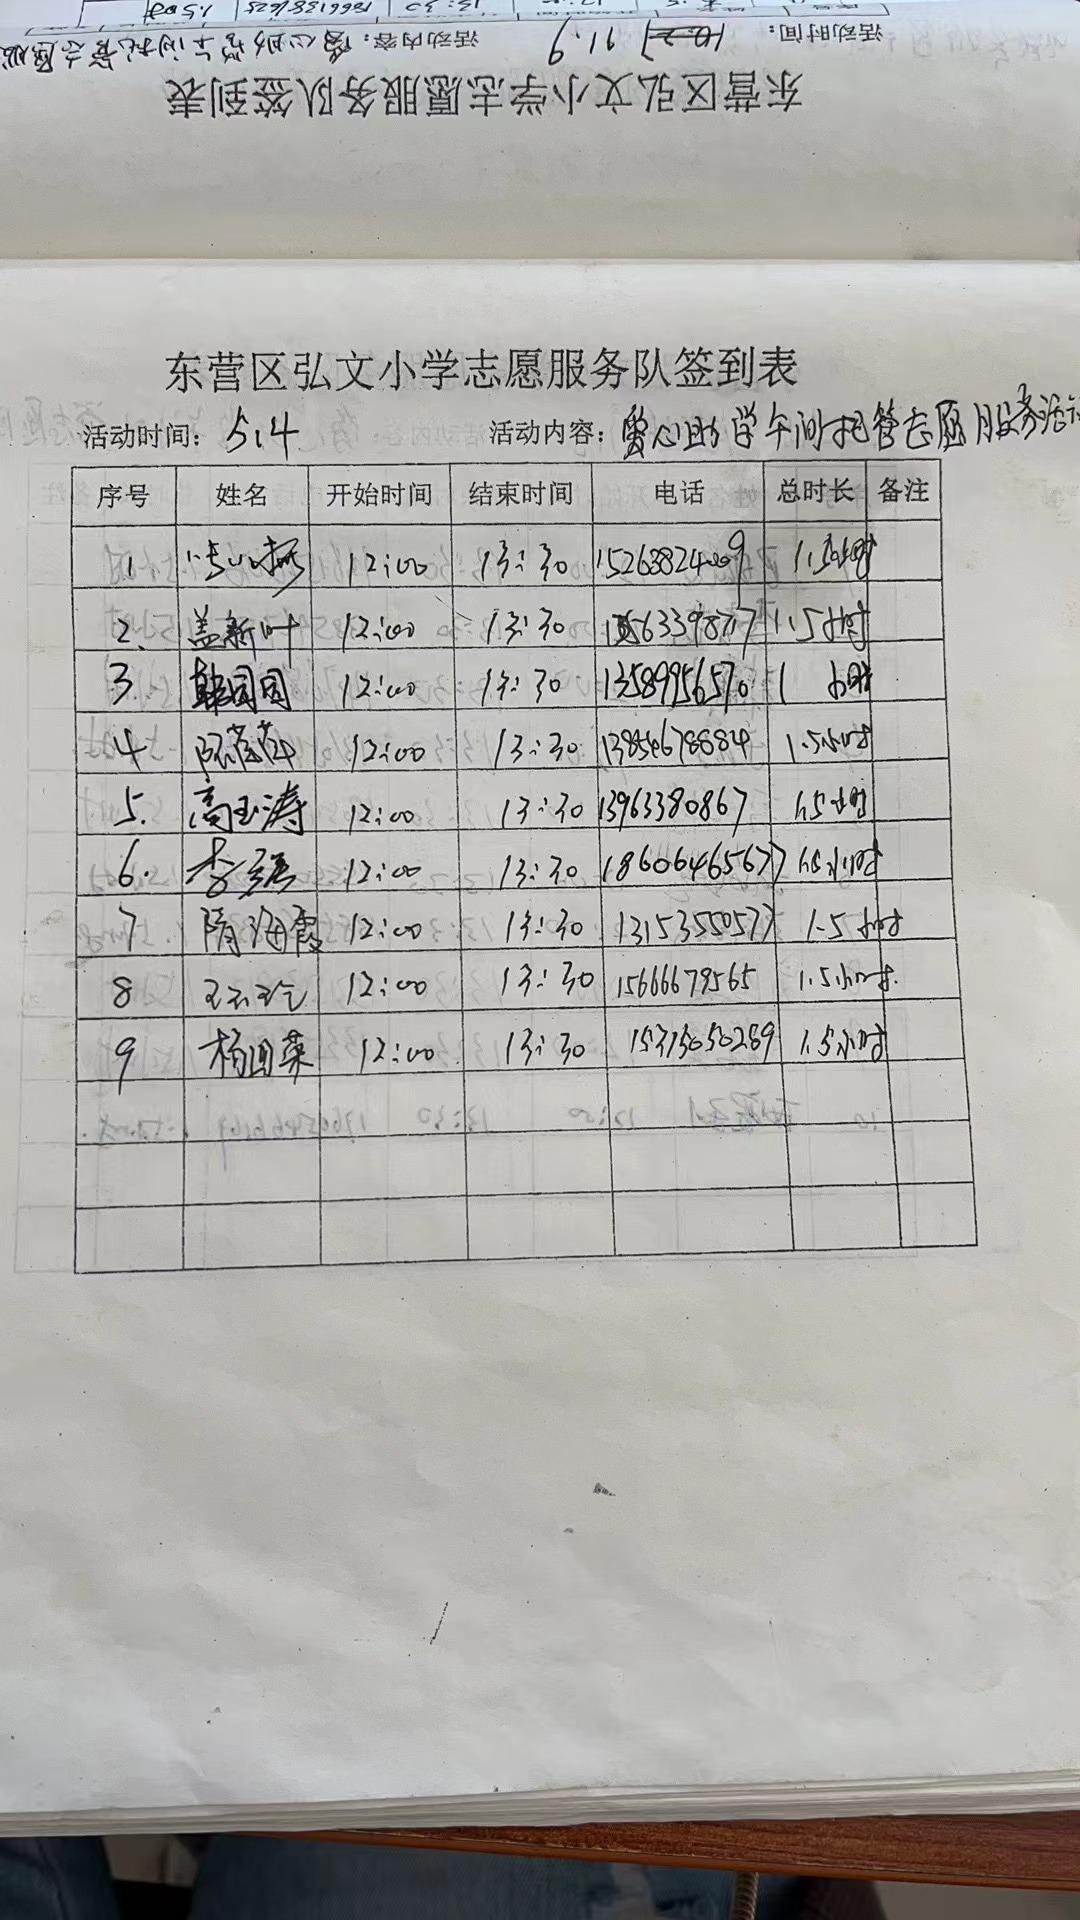 东营区弘文小学志愿服务队签到表
活动时间: 11.9 活动内容:
东营区弘文小学志愿服务队签到表
活动时间: 5.4 活动内容: 爱心助学午间托管志愿服务活动
序号 姓名 开始时间 结束时间 电话 总时长 备注
1 12:00 13:30 1.5小时
2. 盖新叶 12:00 13:30 1.5小时
3. 韩园园 12:00 13:30 13589956570 1 小时
4 12:00 13:30 13854678684 1.5小时
5. 高玉涛 12:00 13:30 13963380867 1.5小时
6. 李强 12:00 13:30 18606465677 1.5小时
7 隋海霞 12:00 13:30 13153550577 1.5小时
8 12:00 13:30 15666679565 1.5小时.
9 杨国英 12:00 13:30 15315050289 1.5小时